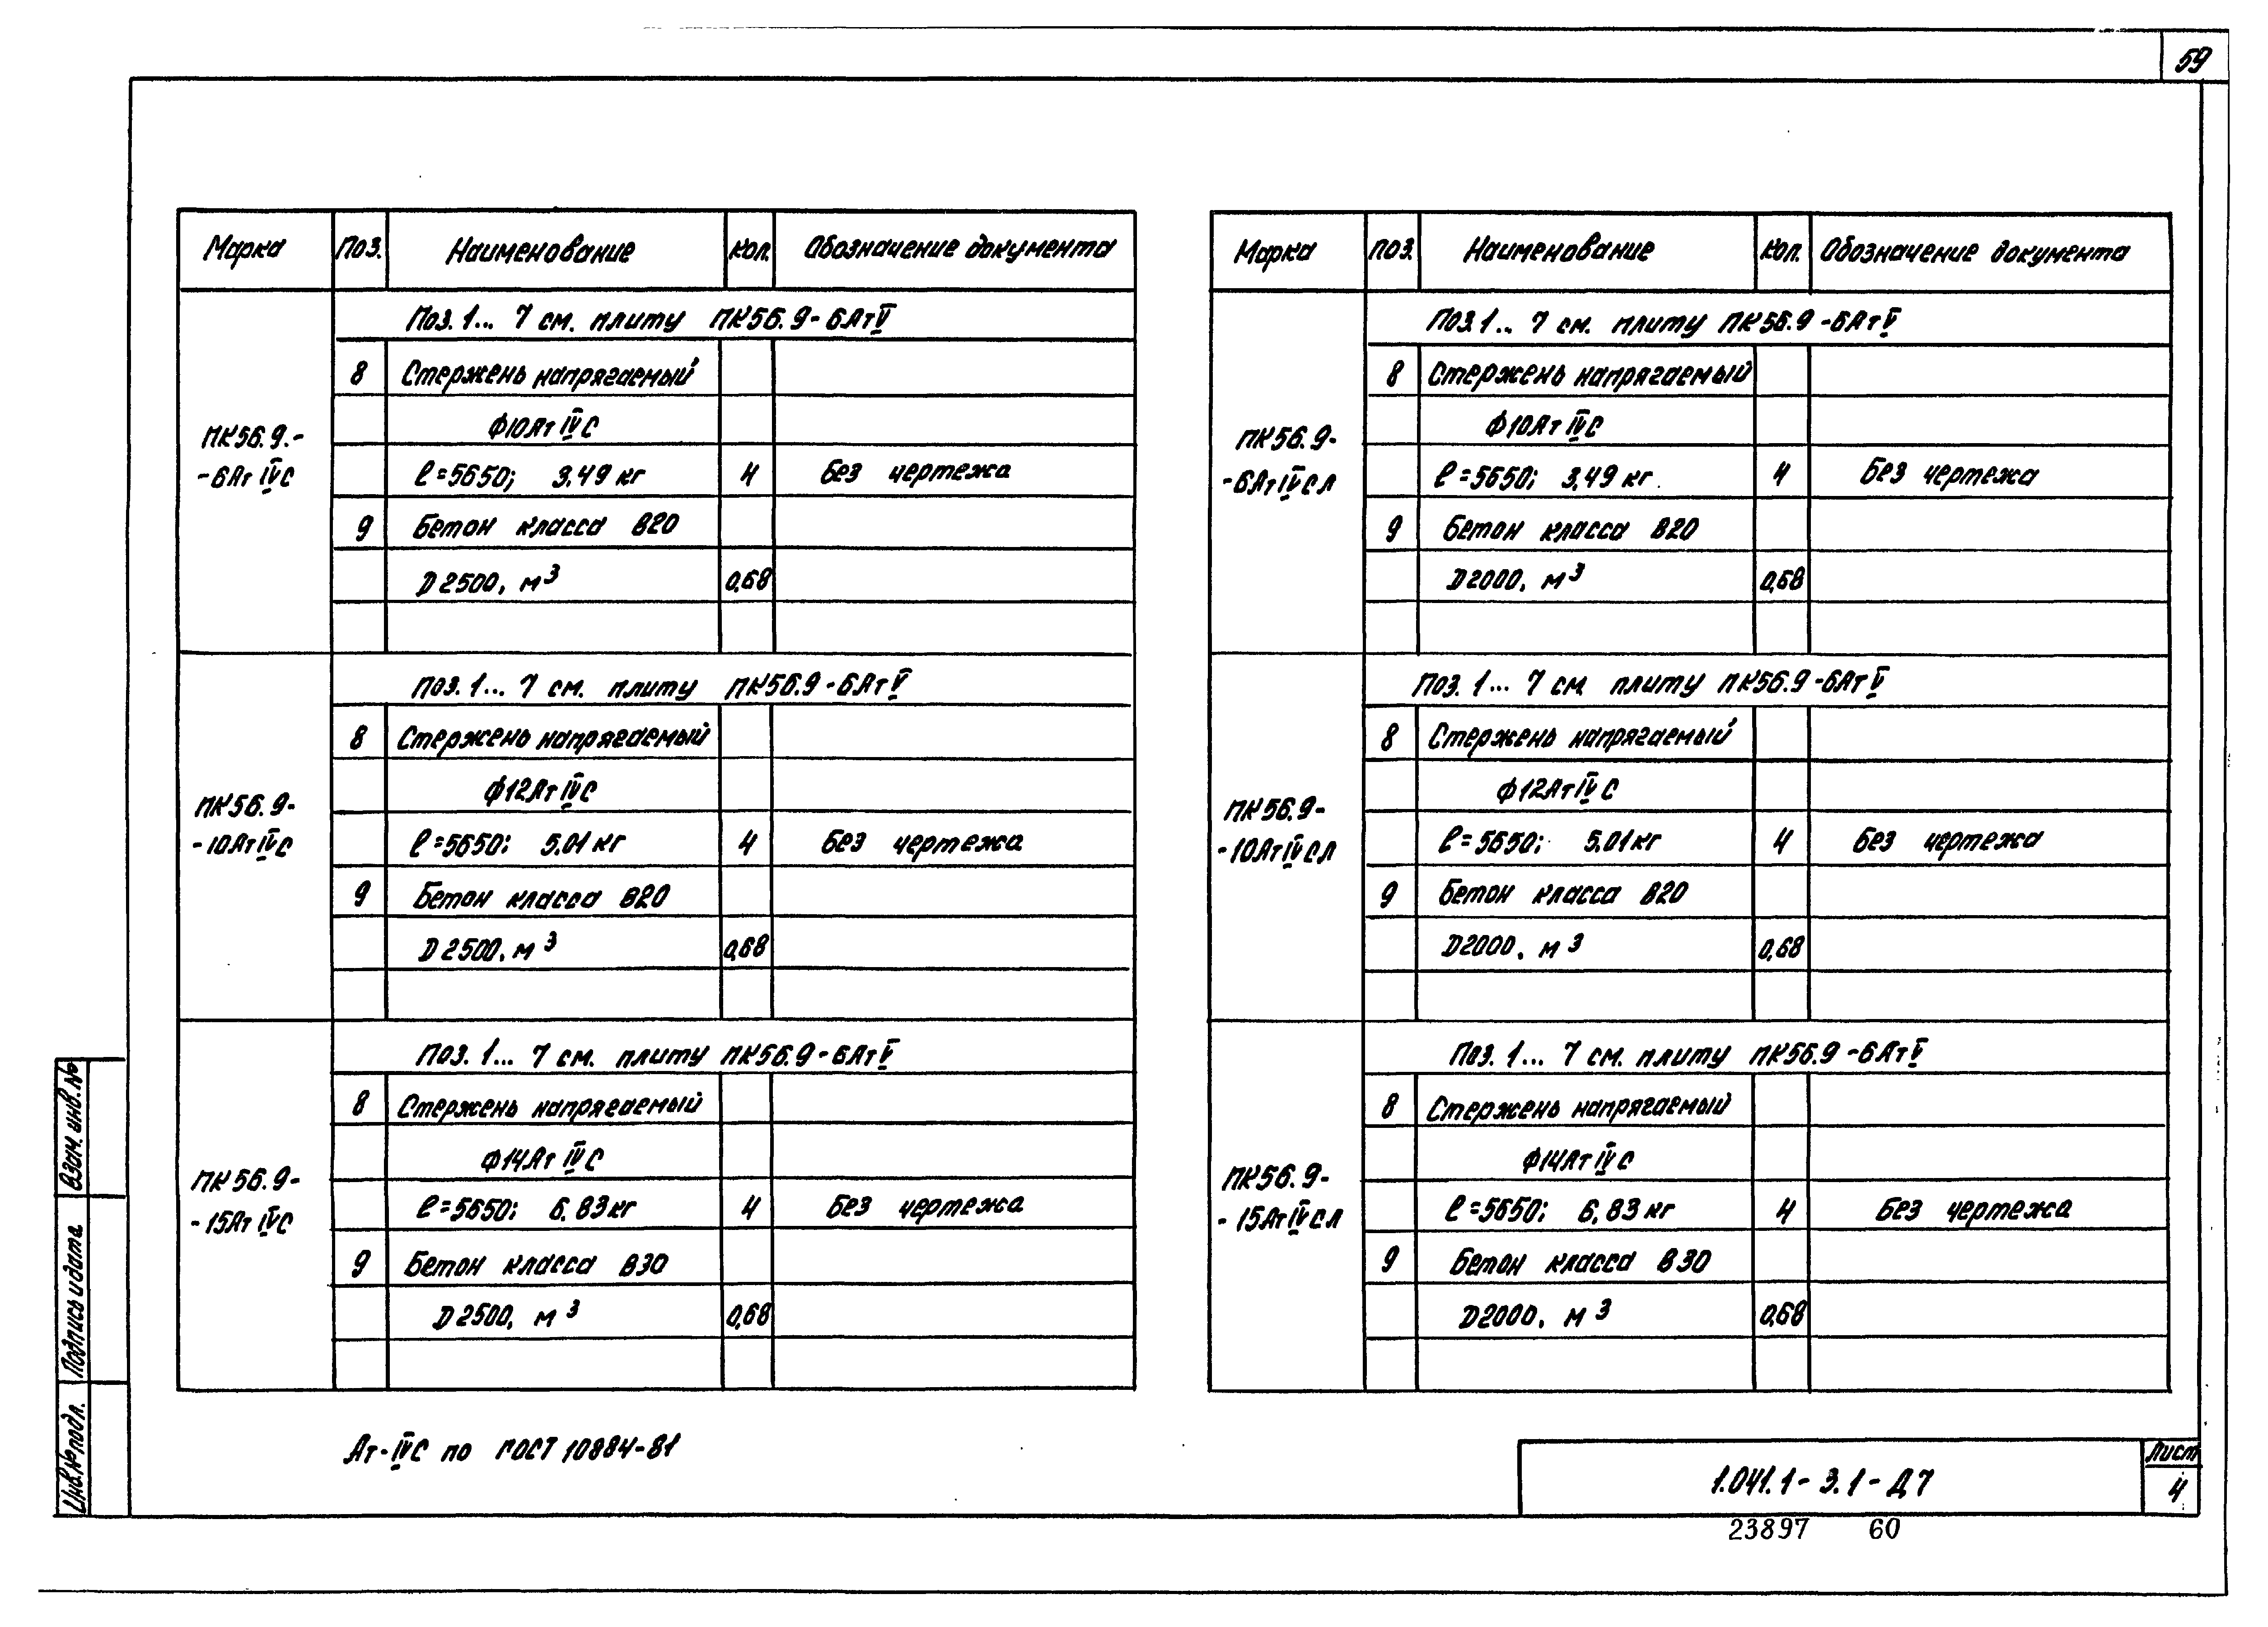 59
Марка Поз. Наименование Кол. Обозначение документа
Поз. 1... 7 см. плиту ПК56.9-6АтV
8 Стержень напрягаемый
Ф10АтIVС
ПК56.9.-
-6АтIVС
ℓ=5650; 3.49 кг 4 Без чертежа
9 Бетон класса В20
D2500, м³ 0,68
Поз. 1... 7 см. плиту ПК56.9-6АтV
8 Стержень напрягаемый
Ф12АтIVС
ПК56.9-
-10АтIVС
ℓ=5650; 5.01 кг 4 Без чертежа
9 Бетон класса В20
D2500, м³ 0,68
Поз. 1... 7 см. плиту ПК56.9-6АтV
8 Стержень напрягаемый
Ф14АтIVС
ПК56.9-
-15АтIVС
ℓ=5650; 6.83 кг 4 Без чертежа
9 Бетон класса В30
D2500, м³ 0,68
Марка Поз. Наименование Кол. Обозначение документа
Поз. 1... 7 см. плиту ПК56.9-6АтV
8 Стержень напрягаемый
Ф10АтIVС
ПК56.9-
-6АтIVСЛ
ℓ=5650; 3.49 кг. 4 Без чертежа
9 Бетон класса В20
D2000, м³ 0,68
Поз. 1... 7 см. плиту ПК56.9-6АтV
8 Стержень напрягаемый
Ф12АтIVС
ПК56.9-
-10АтIVСЛ
ℓ=5650; 5.01 кг 4 Без чертежа
9 Бетон класса В20
D2000, м³ 0,68
Поз. 1... 7 см. плиту ПК56.9-6АтV
8 Стержень напрягаемый
Ф14АтIVС
ПК56.9-
-15АтIVСЛ
ℓ=5650; 6.83 кг 4 Без чертежа
9 Бетон класса В30
D2000, м³ 0,68
Ат-IVС по ГОСТ 10884-81
Взам. инв. №
Подпись и дата
Инв. № подл.
1.041.1-3.1-Д7
Лист
4
23897 60